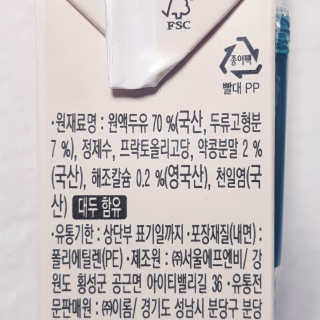 FSC
종이팩
빨대 PP
·원재료명 : 원액두유 70 %(국산, 두류고형분
7 %), 정제수, 프락토올리고당, 약콩분말 2 %
(국산), 해조칼슘 0.2 %(영국산), 천일염(국
산) 대두 함유
·유통기한 : 상단부 표기일까지·포장재질(내면) :
폴리에틸렌(PE)·제조원 : ㈜서울에프엔비/ 강
원도 횡성군 공근면 아이티밸리길 36·유통전
문판매원 : ㈜이롬/ 경기도 성남시 분당구 분당